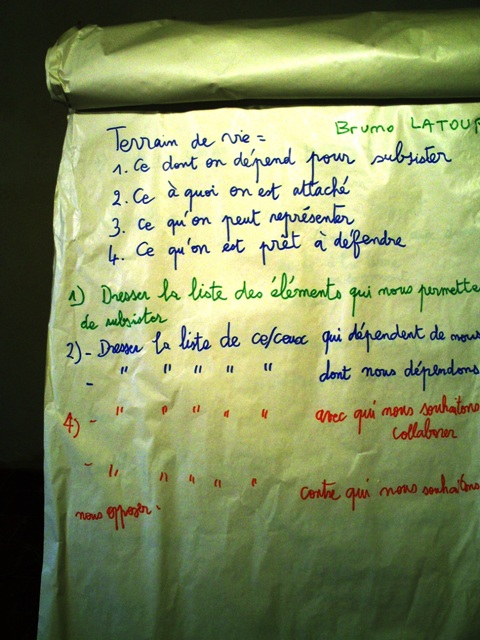 Bruno LATOUR
Terrain de vie =
1. Ce dont on dépend pour subsister
2. Ce à quoi on est attaché
3. Ce qu'on peut représenter
4. Ce qu'on est prêt à défendre
1) Dresser la liste des éléments qui nous permette
de subsister
2) - Dresser la liste de ce/ceux qui dépendent de nous
- " " " " " dont nous dépendons
4) - " " " " " avec qui nous souhaitons
collaborer
- " " " " " contre qui nous souhaitons
nous opposer.